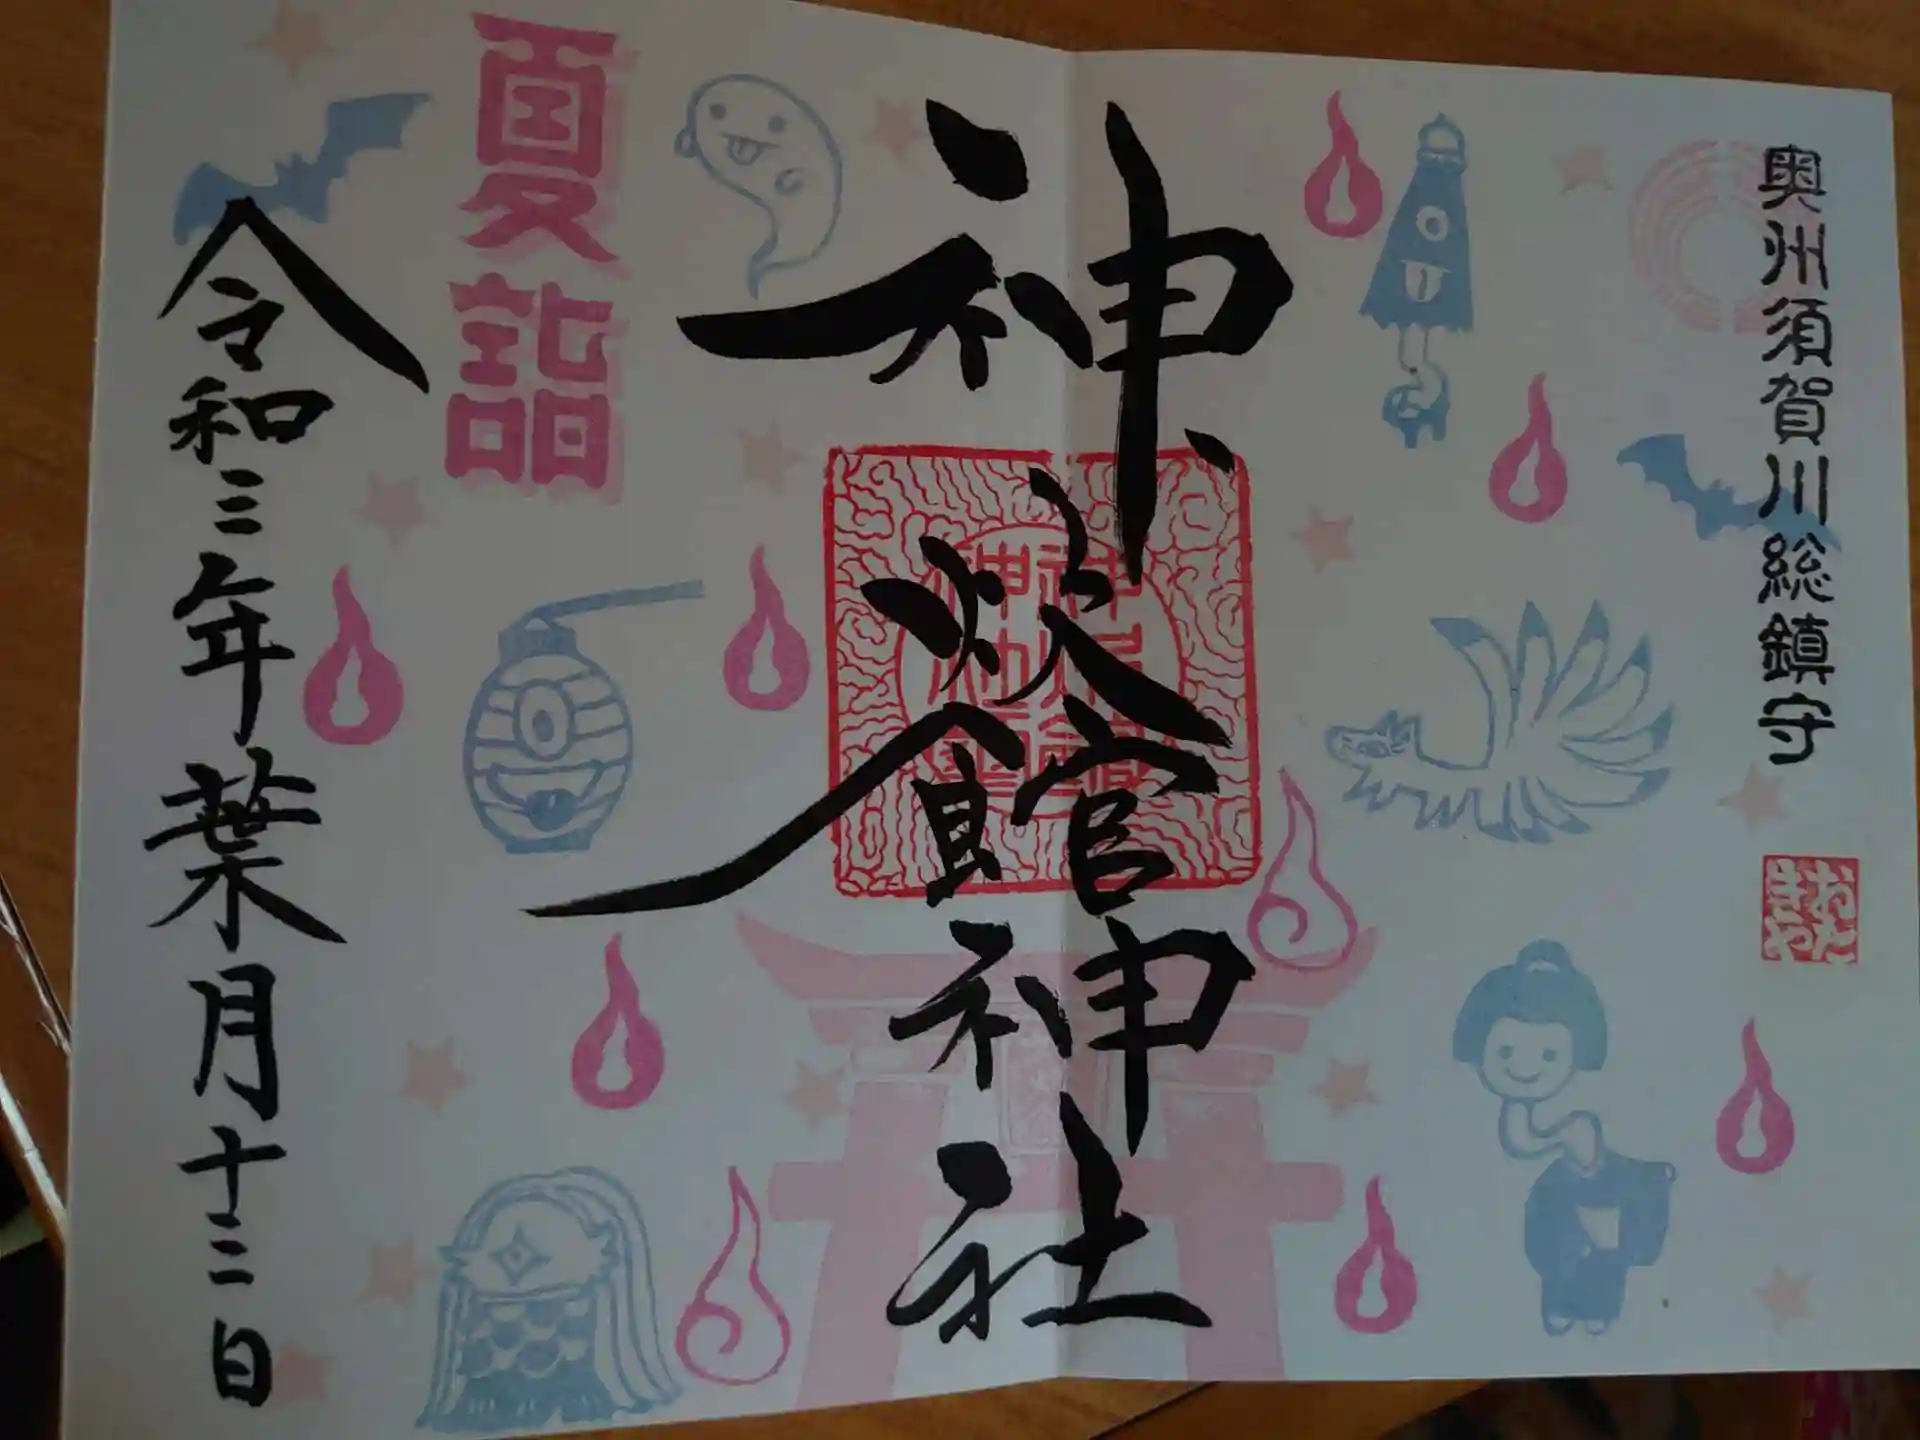 奥州須賀川総鎮守
神炊館神社
夏詣
令和三年葉月十二日